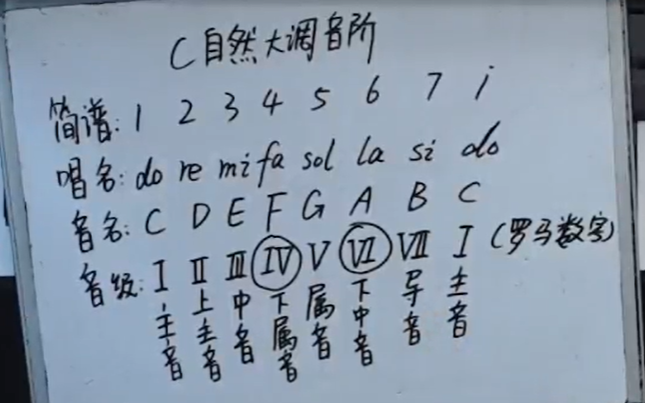 C自然大调音阶
简谱: 1 2 3 4 5 6 7 i
唱名: do re mi fa sol la si do
音名: C D E F G A B C
音级: I II III IV V VI VII I (罗马数字)
主音 上主音 中音 下属音 属音 下中音 导音 主音